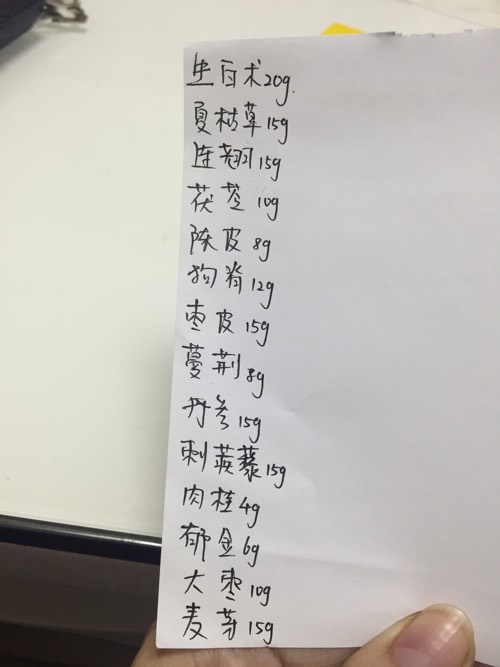 生白术20g.
夏枯草15g
连翘15g
茯苓10g
陈皮8g
狗脊12g
枣皮15g
蔓荆8g
丹参15g
刺蒺藜15g
肉桂4g
郁金6g
大枣10g
麦芽15g